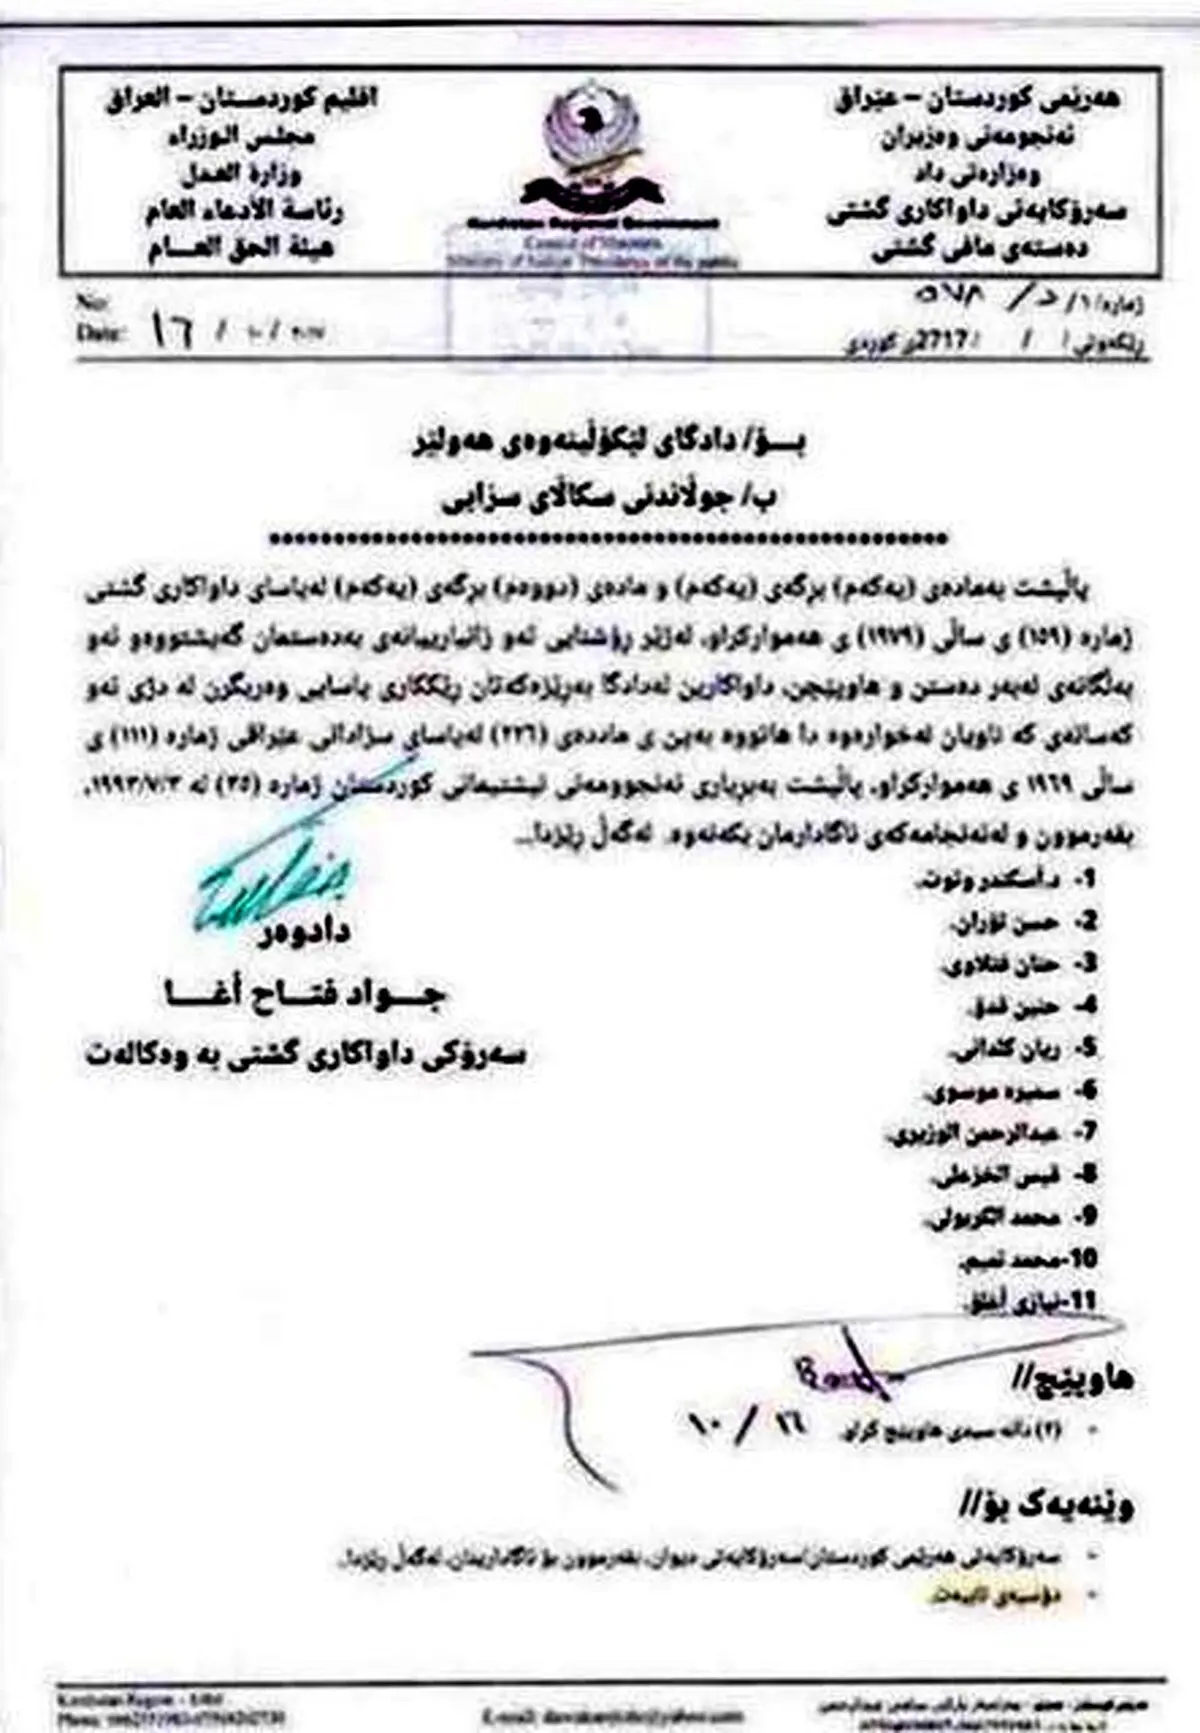 هەرێمی کوردستان – عێراق
ئەنجومەنی وەزیران
وەزارەتی داد
سەرۆکایەتی داواکاری گشتی
دەستەی مافی گشتی
اقلیم کوردستان – العراق
مجلس الوزراء
وزارة العدل
رئاسة الأدعاء العام
هيئة الحق العـــام
Kurdistan Regional Government
Council of Ministers
ژمارە/١/د/ ٥٧٨
No:
ڕێکەوتی / / 2717ی کوردی
Date: ١٦ / ١٠ / ٢٠١٧
بـــۆ/ دادگای لێکۆڵینەوەی هەولێر
ب/ جوڵاندنی سکاڵای سزایی
پاڵپشت بەمادەی (یەکەم) برگەی (یەکەم) و مادەی (دووەم) برگەی (یەکەم) لەیاسای داواکاری گشتی
ژمارە (١٥٩) ی ساڵی (١٩٧٩) ی هەموارکراو، لەژێر ڕۆشنایی ئەو زانیارییانەی بەدەستمان گەیشتووەو ئەو
بەڵگانەی لەبەر دەستن و هاوپێچن، داواکارین لەدادگا بەڕێزەکەتان ڕێککاری یاسایی وەربگرن لە دژی ئەو
کەسانەی کە ناویان لەخوارەوە دا هاتووە بەپێ ی ماددەی (٢٢٦) لەیاسای سزادانی عێراقی ژمارە (١١١) ی
ساڵی ١٩٦٩ ی هەموارکراو، پاڵپشت بەبڕیاری ئەنجوومەنی نیشتیمانی کوردستان ژمارە (٣٥) لە ١٩٩٣/٧/٣،
بفەرموون و لەئەنجامەکەی ئاگادارمان بکەنەوە. لەگەڵ ڕێزدا...
1- د.أسکندر وتوت.
2- حسن تۆران.
3- حنان فتلاوی.
4- حنین قدۆ.
5- ریان کلدانی.
6- سمیرە موسوی.
7- عبدالرحمن الوزیری.
8- قیس الخزعلی.
9- محمد الکربولی.
10-محمد تمیم.
11-نیازی أغلو.
دادوەر
جـــواد فتـــاح أغـــا
سەرۆکی داواکاری گشتی بە وەکالەت
هاوپێچ//
- (٢) دانە سیدی هاوپێچ کراو. ١٦ / ١٠
وێنەیەک بۆ//
- سەرۆکایەتی هەرێمی کوردستان/سەرۆکایەتی دیوان، بفەرموون بۆ ئاگاداریتان، لەگەڵ ڕێزدا.
- دۆسیەی تایبەت.
Kurdistan Region -
Phone:
E-mail: